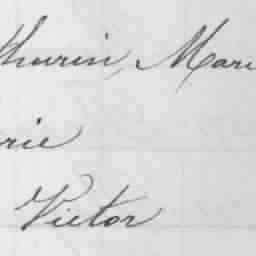 thurin, Mari
rie
Victor